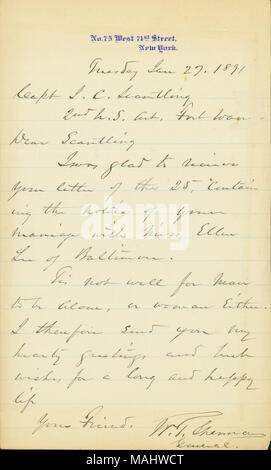 No. 75 West 71st Street,
New York.
Tuesday Jan 27, 1891
Capt J. C. Scantling
2nd U.S. Art. Fort
Dear Scantling
I was glad to receive
your letter of the 25, contain
ing the notice of your
marriage with Miss Ellen
Lee of Baltimore.
Tis not well for Man
to be alone, or woman Either.
I therefore send you my
hearty greetings and best
wishes for a long and happy
life
Your Friend.
W. T. Sherman
General.
alamy
Image ID: MAHWCT
www.alamy.com